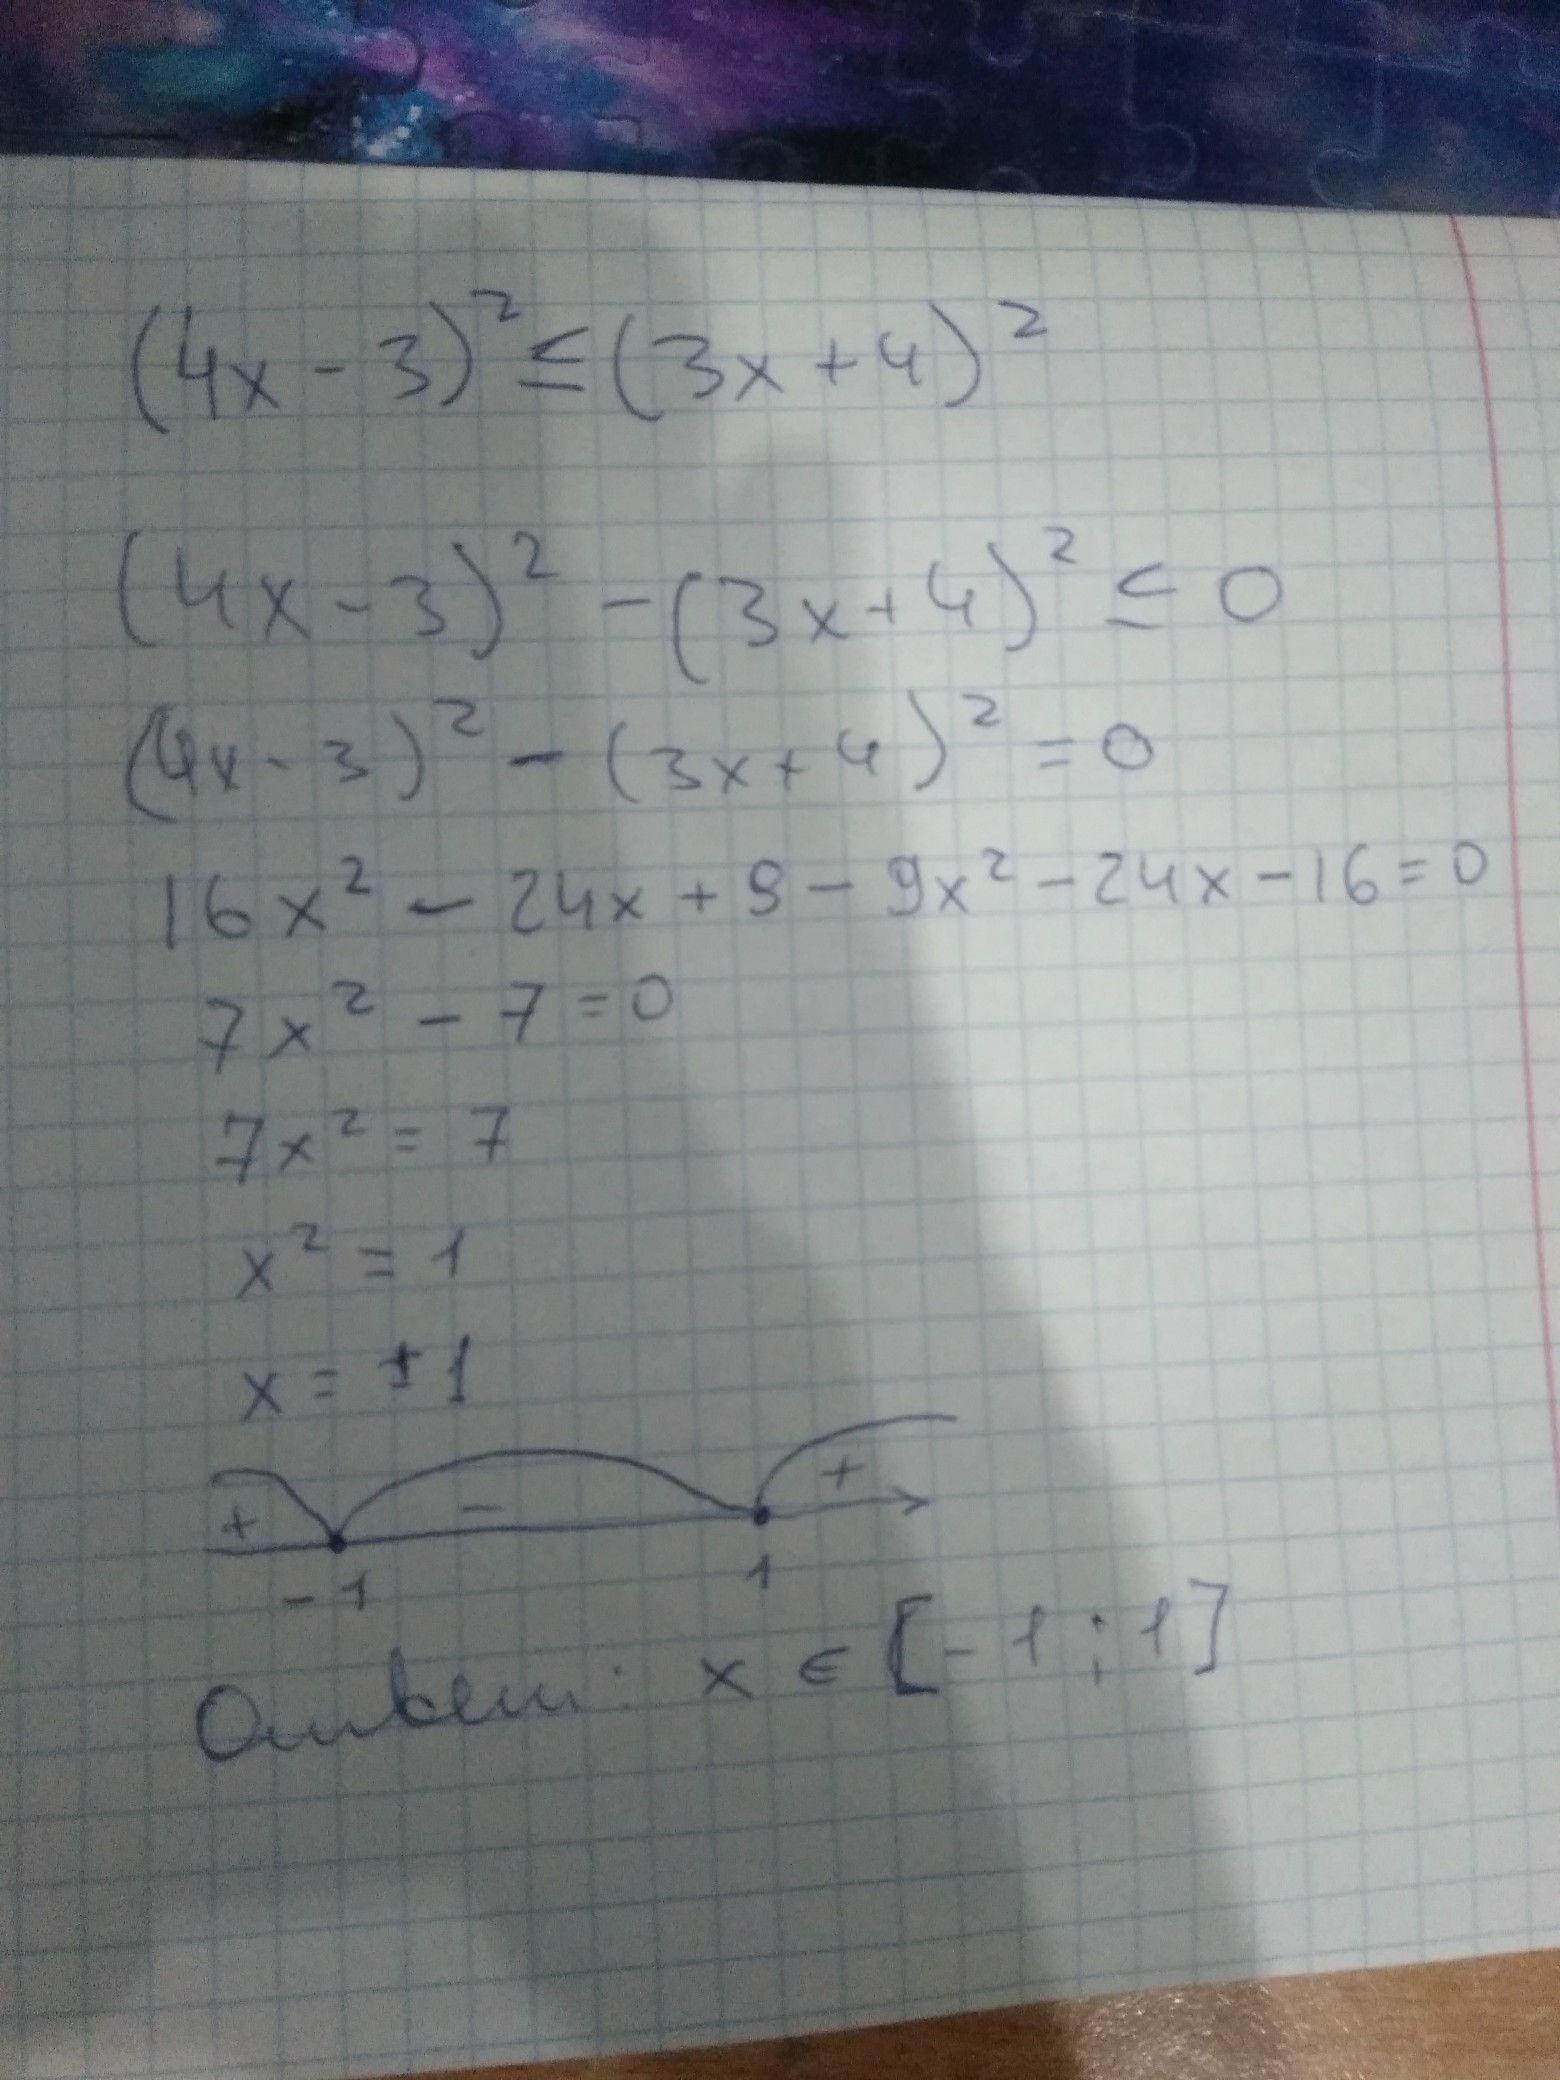 (4x - 3)² ≤ (3x + 4)²
(4x - 3)² - (3x + 4)² ≤ 0
(4x - 3)² - (3x + 4)² = 0
16x² - 24x + 9 - 9x² - 24x - 16 = 0
7x² - 7 = 0
7x² = 7
x² = 1
x = ±1
+ - +
-1 1
Ответ: x ∈ [-1; 1]